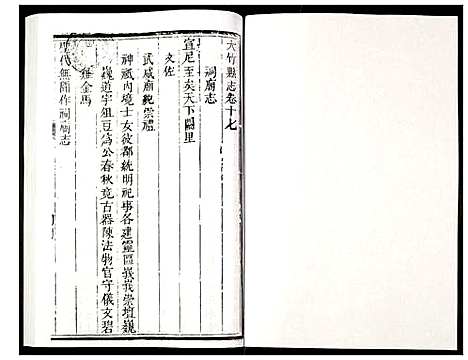 大竹縣志卷十七
祠廟志
宣尼至矣天下闕里
文佐
武威廟貌崇禮
神祇內境士女彼都統明祀事各建靈區峩峩崇壇巍
巍道宇俎豆為公春秋竟古器陳法物官守儀文碧
雞金馬
代無闕作祠廟志